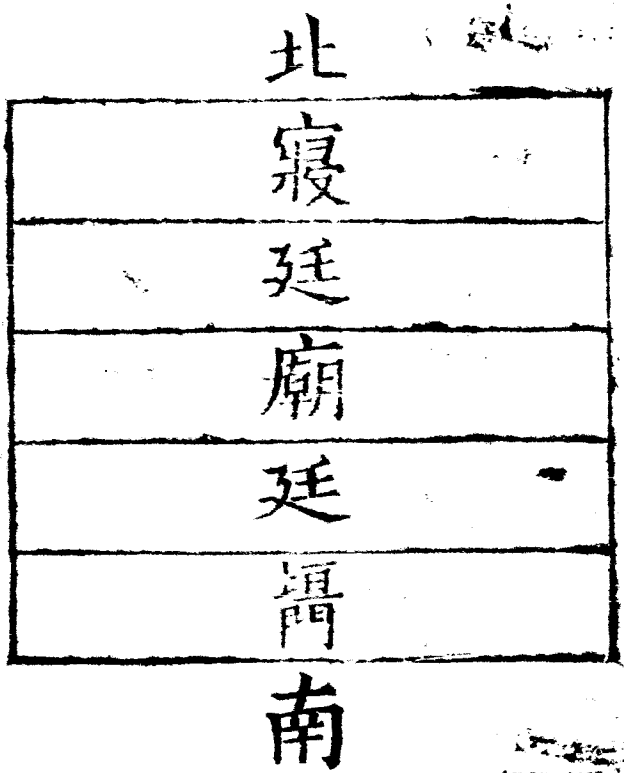 北
寢
廷
廟
廷
南